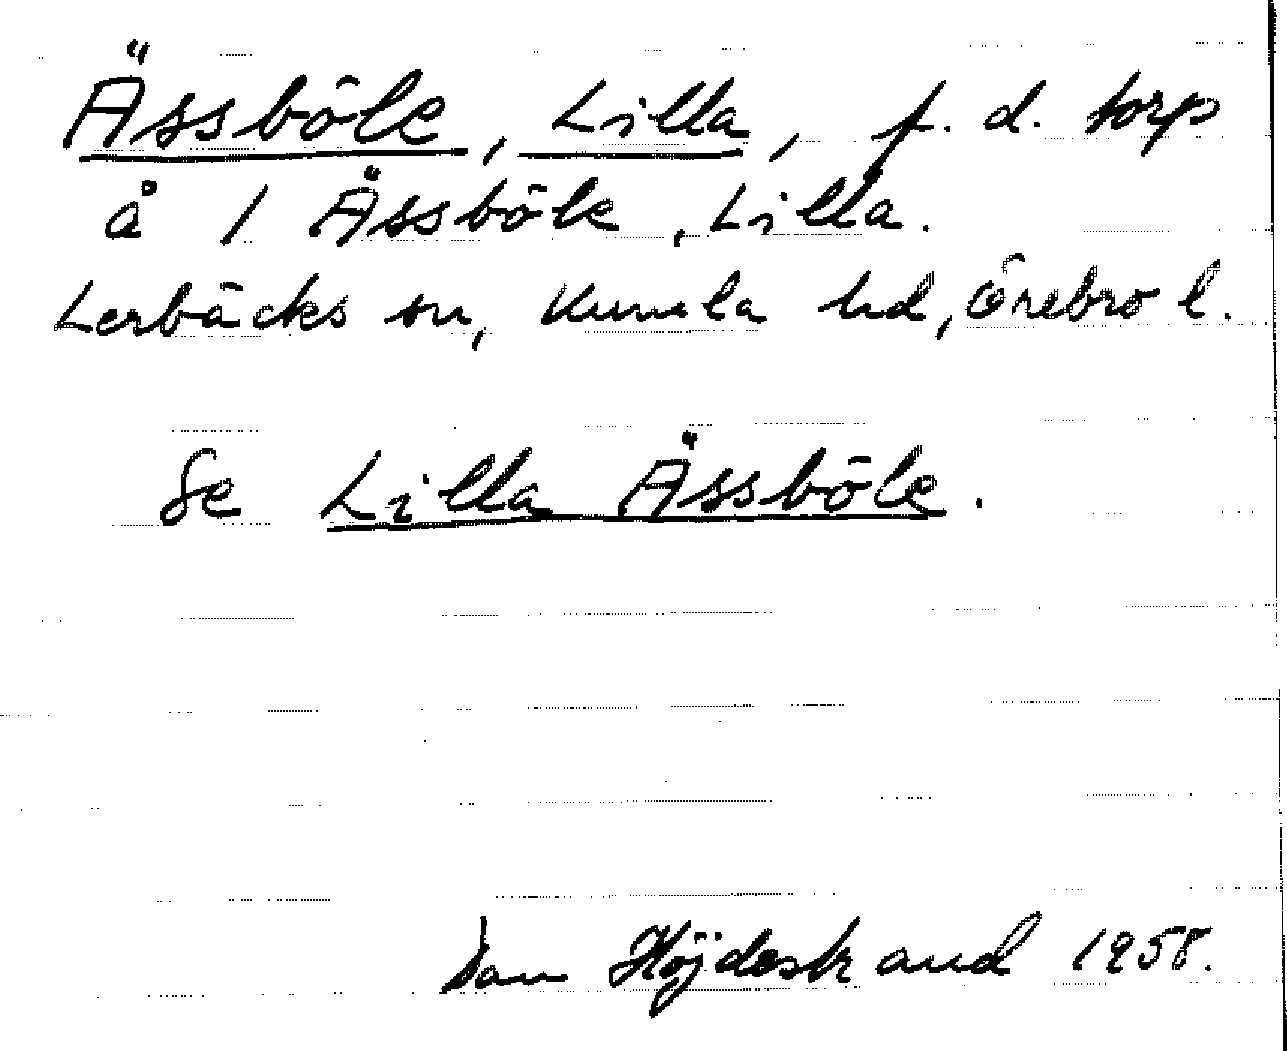 Ässböle, Lilla, f. d. torp
å 1 Ässböle, Lilla.
Lerbäcks sn, Kumla hd, Örebro l.
Se Lilla Ässböle.
Dan Höjdestrand 1958.